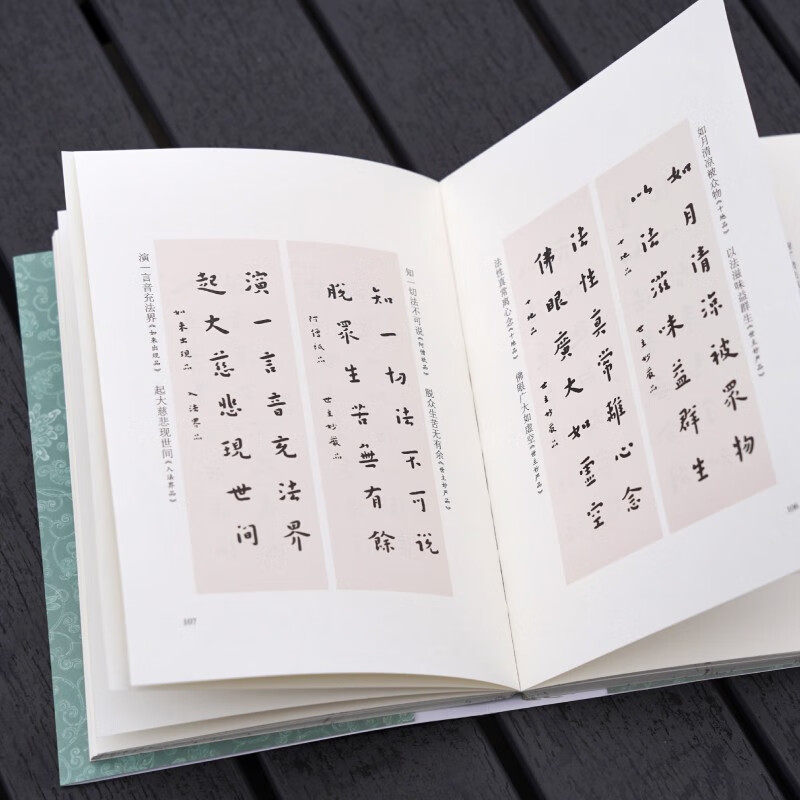 如月清凉被众物《十地品》 以法滋味益群生《世主妙严品》
如月清涼被眾物
以法滋味益群生
十地品
法性真常离心念《十地品》 佛眼广大如虚空《世主妙严品》
法性真常離心念
佛眼廣大如虛空
十地品 世主妙嚴品
106
知一切法不可说《阿僧祇品》 脱众生苦无有余《世主妙严品》
知一切法不可說
脫眾生苦無有餘
阿僧祇品 世主妙嚴品
演一言音充法界
起大慈悲現世間
如來出現品 入法界品
演一言音充法界《如来出现品》 起大慈悲现世间《入法界品》
107